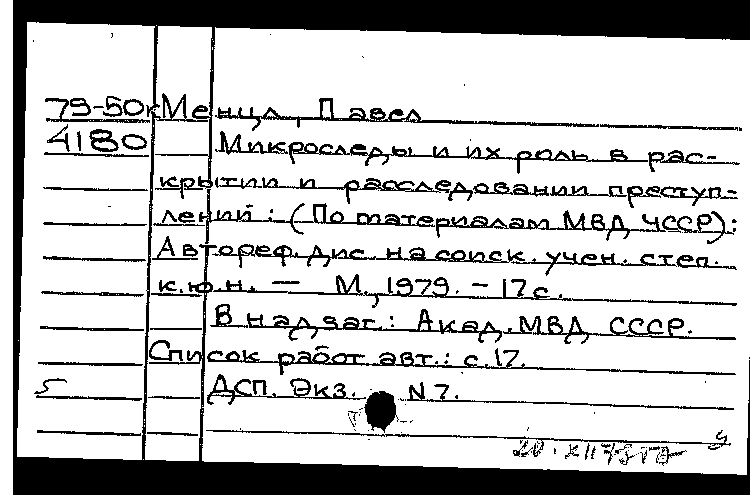 79-50к Менцл, Павел
4180 Микроследы и их роль в рас-
крытии и расследовании преступ-
лений: (По материалам МВД ЧССР):
Автореф. дис. на соиск. учен. степ.
к.ю.н. — М., 1979. - 17 с.
В надзаг.: Акад. МВД СССР.
Список работ авт.: с. 17.
5 ДСП. Экз. N 7.